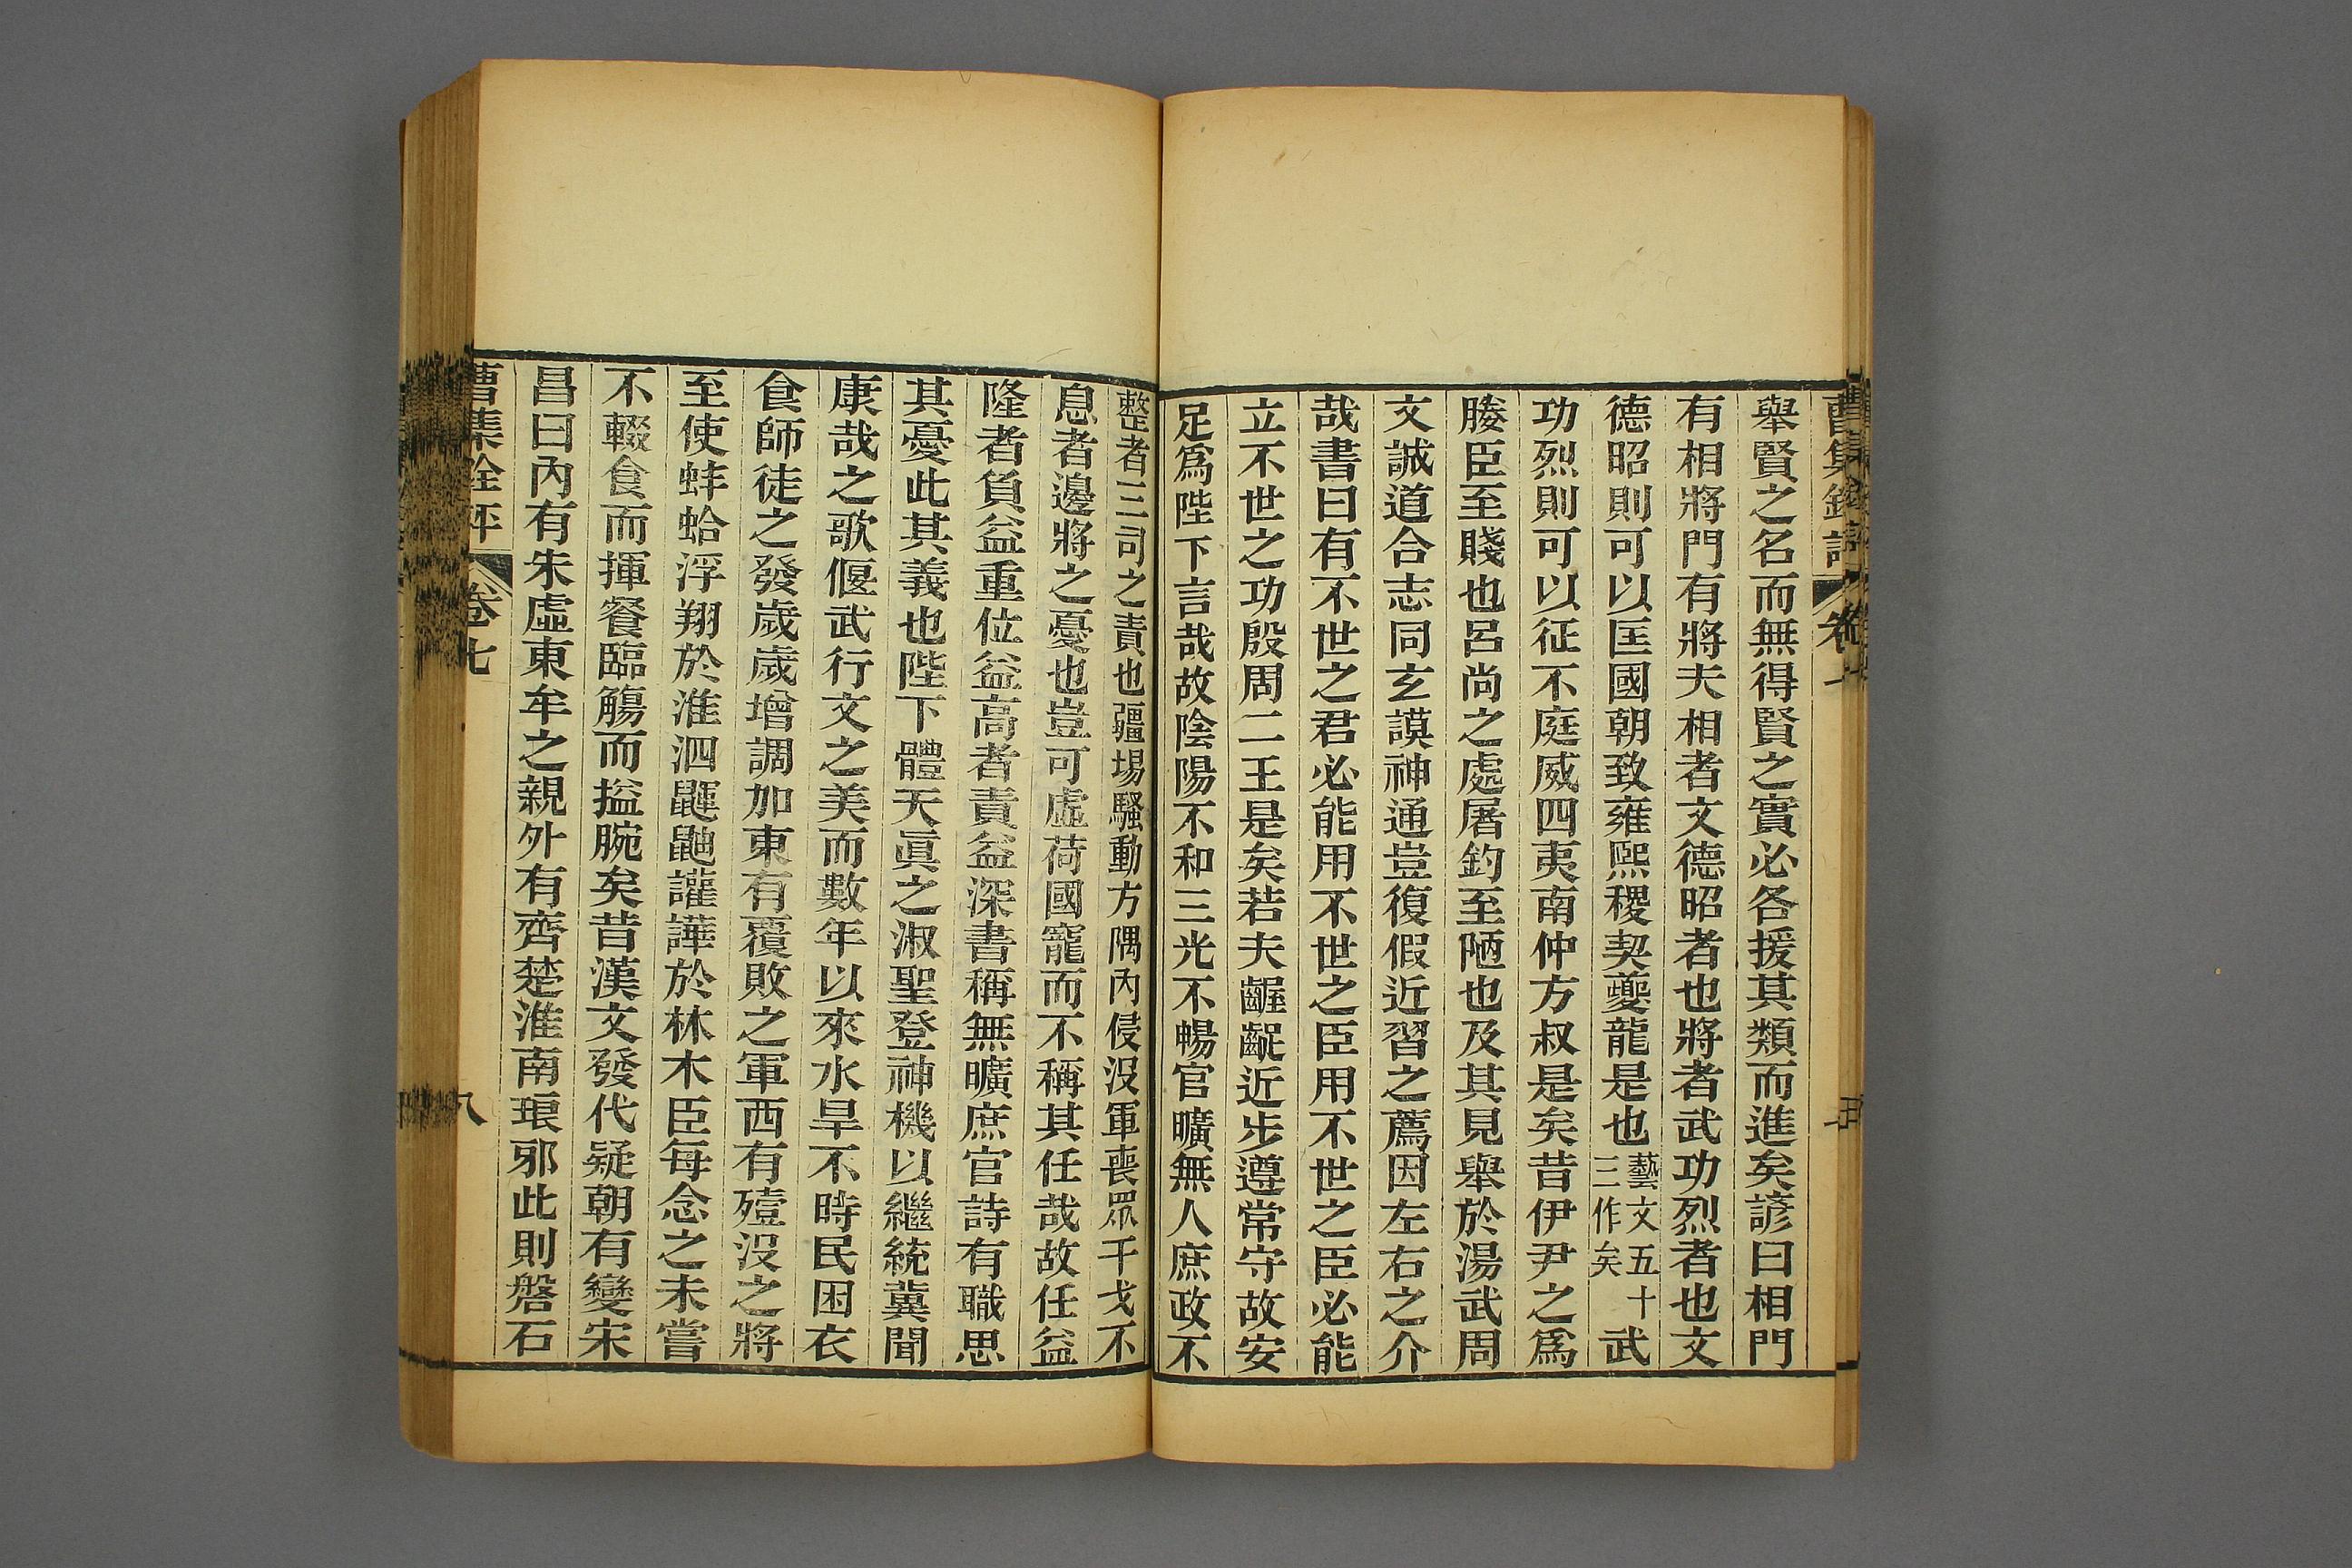 舉賢之名而無得賢之實必各援其類而進矣諺曰相門
有相將門有將夫相者文德昭者也將者武功烈者也文
德昭則可以匡國朝致雍熙稷契夔龍是也藝文五十三作矣武
功烈則可以征不庭威四夷南仲方叔是矣昔伊尹之爲
媵臣至賤也呂尚之處屠釣至陋也及其見舉於湯武周
文誠道合志同玄謨神通豈復假近習之薦因左右之介
哉書曰有不世之君必能用不世之臣用不世之臣必能
立不世之功殷周二王是矣若夫齷齪近步遵常守故安
足爲陛下言哉故陰陽不和三光不暢官曠無人庶政不
整者三司之責也疆場騷動方隅內侵沒軍喪眾干戈不
息者邊將之憂也豈可虛荷國寵而不稱其任哉故任益
隆者負益重位益高者責益深書稱無曠庶官詩有職思
其憂此其義也陛下體天眞之淑聖登神機以繼統冀聞
康哉之歌偃武行文之美而數年以來水旱不時民困衣
食師徒之發歲歲增調加東有覆敗之軍西有殪沒之將
至使蚌蛤浮翔於淮泗鼲鼬讙譁於林木臣每念之未嘗
不輟食而揮餐臨觴而搤腕矣昔漢文發代疑朝有變宋
昌曰內有朱虛東牟之親外有齊楚淮南琅邪此則磐石
曹集銓評 卷七 八